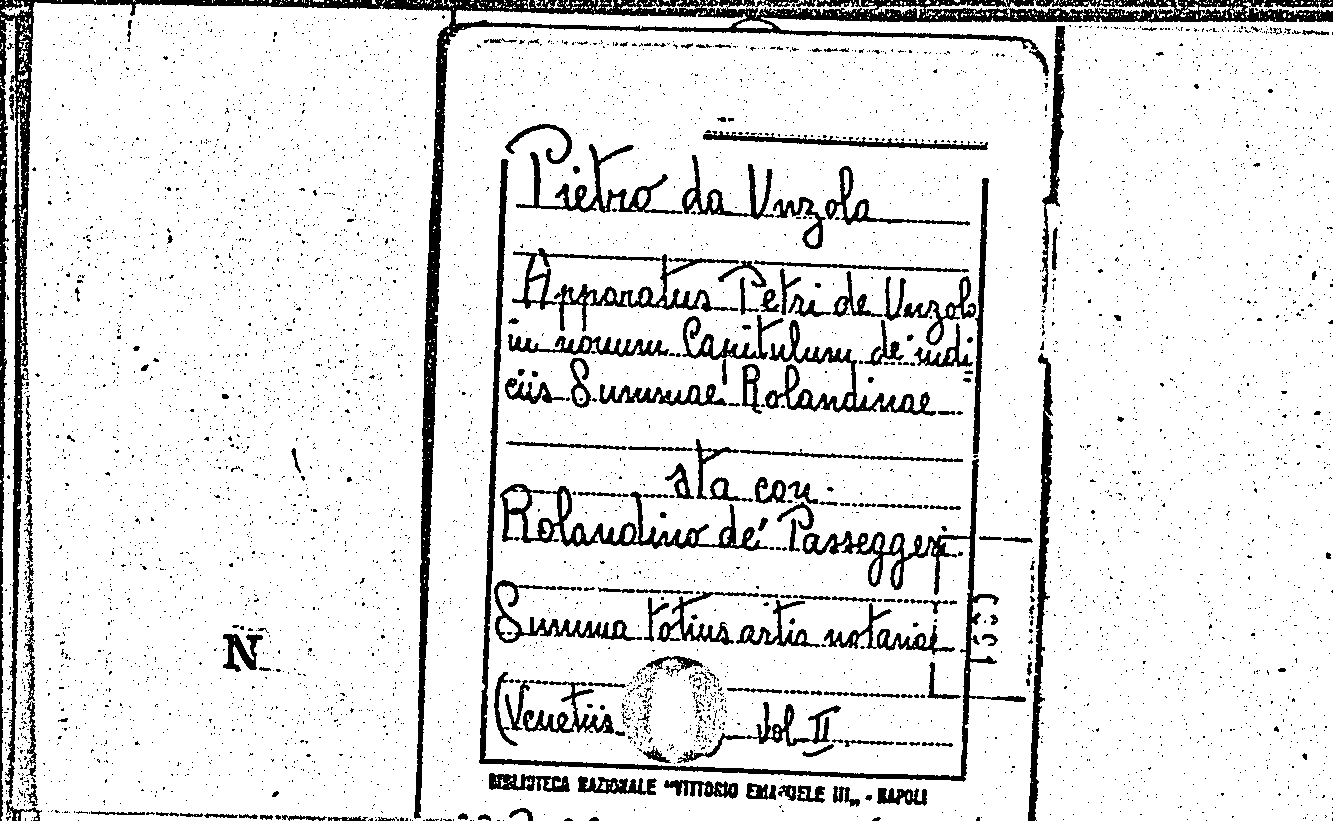 Pietro da Unzola
Apparatus Petri de Unzola
in novum Capitulum de iudi
ciis Summae Rolandinae
sta con
Rolandino de' Passeggeri
Summa totius artis notariae
(Venetiis vol II
N
BIBLIOTECA NAZIONALE "VITTORIO EMANUELE III„ - NAPOLI